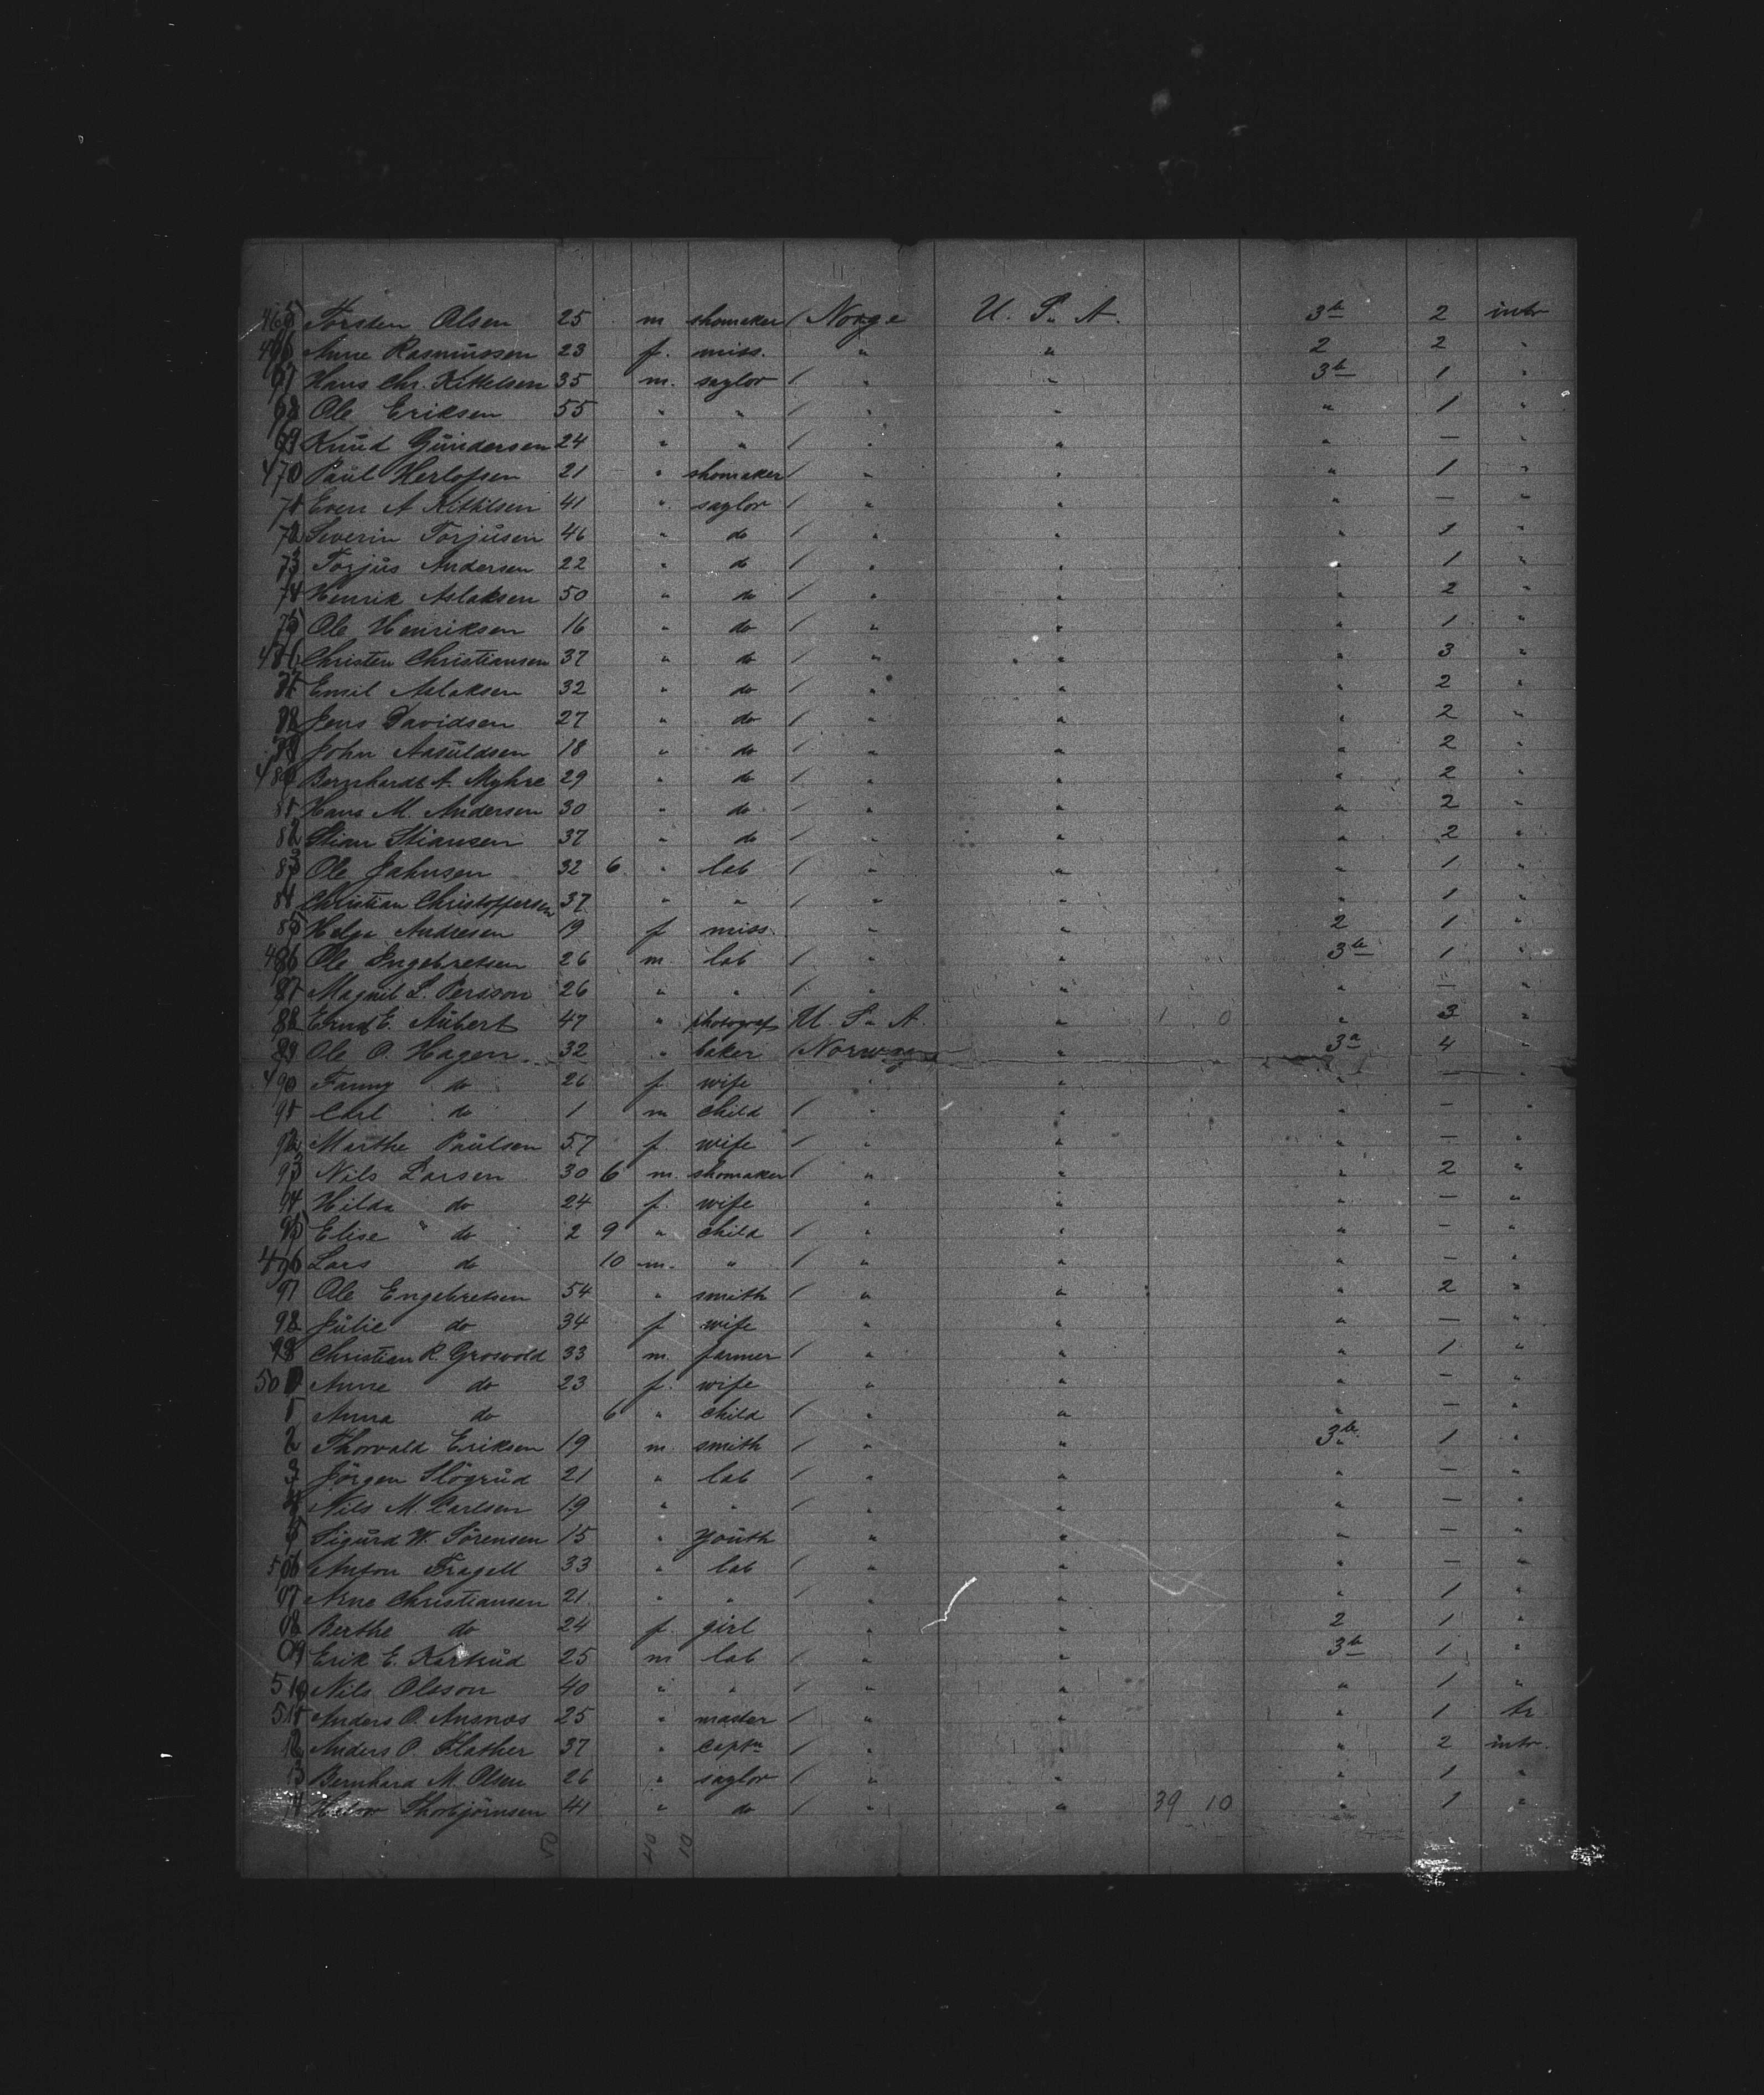 465 Torsten Olsen 25 m shomaker / Norge U. S. A. 3te 2 intr
466 Anne Rasmussen 23 f. miss. " " 2 2 "
67 Hans Chr. Kittelsen 35 m. saylor / " " 3te 1 "
68 Ole Eriksen 55 " " / " " " 1 "
69 Knud Gundersen 24 " " / " " " — "
470 Paul Herlofsen 21 " shomaker / " " " 1 "
71 Even A Kittilsen 41 " saylor / " " " — "
72 Severin Torjusen 46 " do / " " " 1 "
73 Torjus Andersen 22 " do / " " " 1 "
74 Henrik Aslaksen 50 " do / " " " 2 "
75 Ole Henriksen 16 " do / " " " 1 "
476 Christen Christiansen 37 " do / " " " 3 "
77 Emil Aslaksen 32 " do / " " " 2 "
78 Jens Davidsen 27 " do / " " " 2 "
79 John Aasuldsen 18 " do / " " " 2 "
480 Bernhardt A. Myhre 29 " do / " " " 2 "
81 Hans M. Andersen 30 " do / " " " 2 "
82 Stian Stiansen 37 " do / " " " 2 "
83 Ole Jahnsen 32 6 " lab / " " " 1 "
84 Christian Christoffersen 37 " " / " " " 1 "
85 Helga Andresen 19 f miss. " " 2 1 "
486 Ole Ingebretsen 26 m. lab / " " 3te 1 "
87 Magnil L. Persson 26 " " / " " " — "
88 E. Aubert 47 " photograf U. S. A. " 1 0 " 3 "
89 Ole O. Hagen 32 " baker / Norway " 3a 4 "
490 Fanny do 26 f. wife " " " — "
91 Carl do 1 m child / " " " — "
92 Marthe Paulsen 57 f. wife / " " " — "
93 Nils Larsen 30 6 m. shomaker / " " " 2 "
94 Hilda do 24 f. wife " " " — "
95 Elise " do 2 9 " child / " " " — "
496 Lars do 10 m. " / " " " — "
97 Ole Engebretsen 54 " smith / " " " 2 "
98 Julie do 34 f wife " " " — "
99 Christian R. Grosvold 33 m. farmer / " " " 1 "
500 Anne do 23 f. wife " " " — "
1 Anna do 6 " child / " " " — "
2 Thorvald Eriksen 19 m. smith / " " 3te 1 "
3 Jörgen Slögrud 21 " lab / " " " — "
4 Nils M. Carlsen 19 " " / " " " — "
5 Sigurd W. Sörensen 15 " youth " " " — "
506 Anton Fragell 33 " lab / " " " — "
07 Arne Christiansen 21 " " / " " " 1 "
08 Berthe do 24 f. girl " " 2 1 "
09 Erik E. Karlsud 25 m lab / " " 3te 1 "
510 Nils Olsson 40 " " / " " " 1 "
511 Anders O. Ausnos 25 " master / " " " 1 tr
12 Anders O. Flather 37 " captn / " " " 2 intr.
13 Bernhard M. Olsen 26 " saylor / " " " 1 "
14 Thorbjörnsen 41 " do / " " 39 10 " 1 "
50 40 10